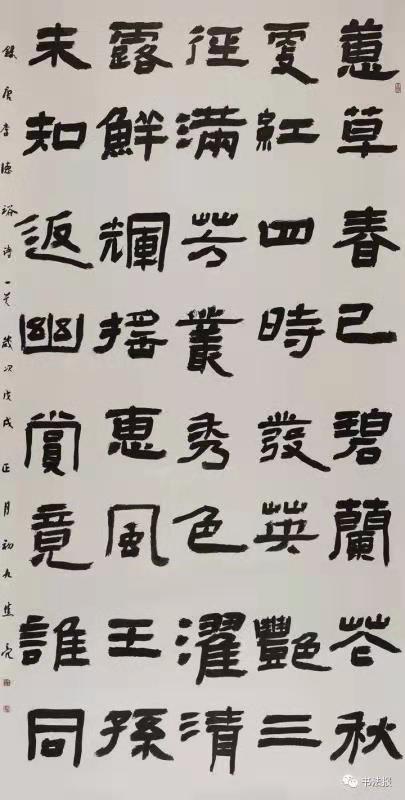 蕙草春已碧蘭花秋
更紅四時發英艷三
徑滿芳叢秀色濯清
露鮮輝摇惠風王孫
未知返幽賞竟誰同
録唐李德裕詩一首歲次戊戌正月初九焦亮
书法报